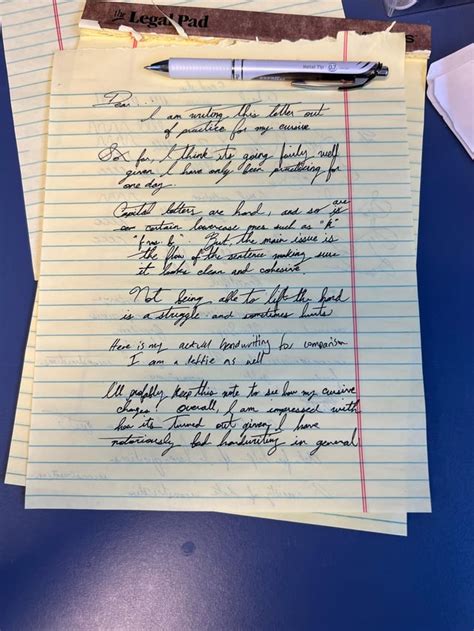 the Legal Pad
Metal Tip 0.7
Dear
I am writing this letter out
of practice for my cursive
So far, I think its going fairly well
given I have only been practicing for
one day.
Capital letters are hard, and so are
certain lowercase ones such as "k"
But, the main issue is
the flow of the sentence making sure
it looks clean and cohesive
Not being able to lift the hand
is a struggle and sometimes hurts
Here is my actual handwriting for comparison
I am a leftie as well
I'll probably keep this note to see how my cursive
changes! Overall, I am impressed with
how its turned out given I have
notoriously bad handwriting in general